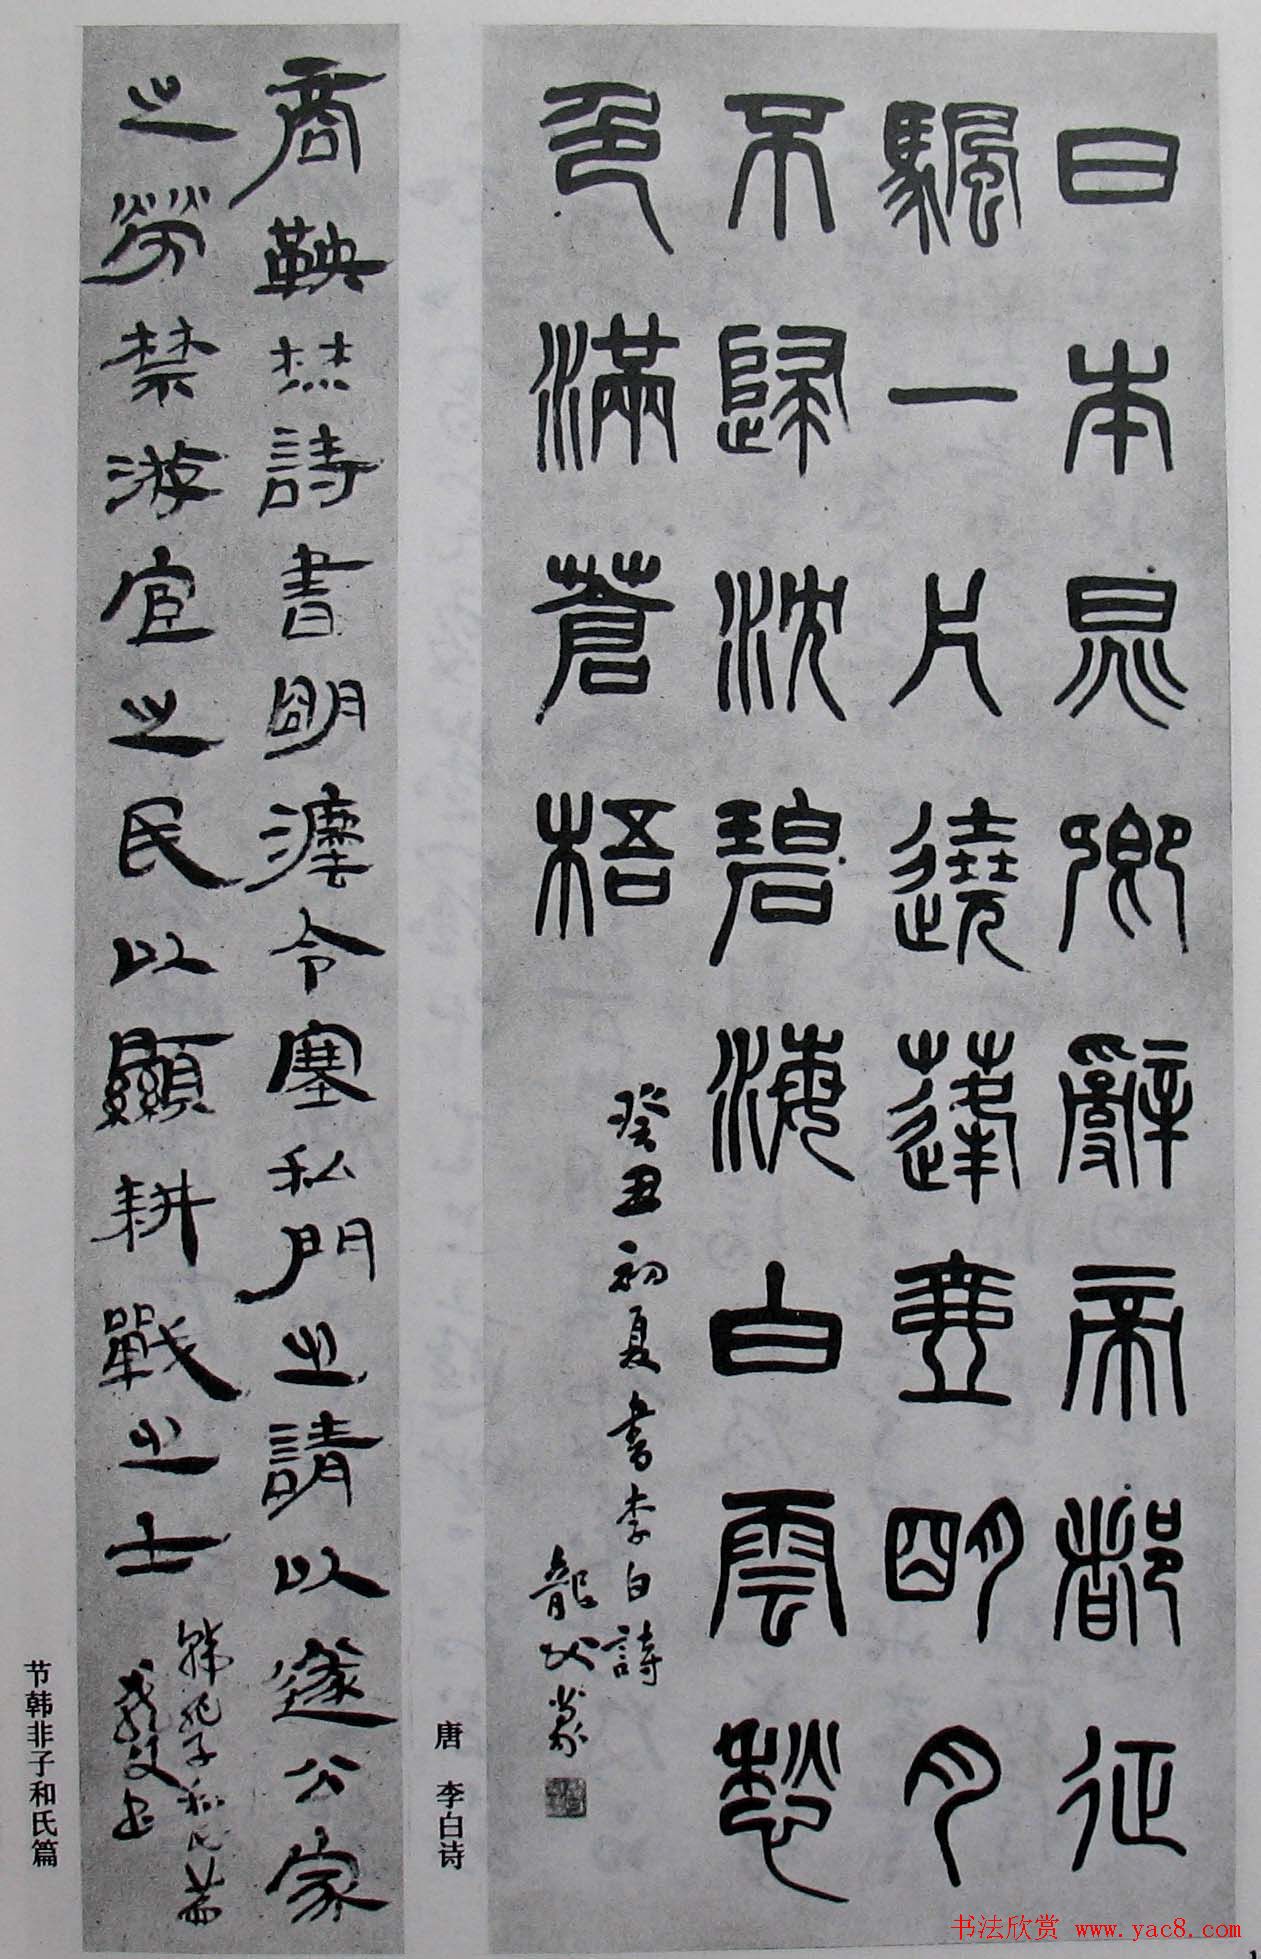 日本晁卿辭帝都征
颿一片遶蓬壺明月
不歸沈碧海白雲愁
色滿蒼梧
癸丑初夏書李白詩
龍父篆
唐 李白诗
商鞅焚詩書明灋令塞私門之請以遂公家
之勞禁游宦之民以顯耕戰之士
韓非子和氏篇
龍父書
节韩非子和氏篇
书法欣赏 www.yac8.com